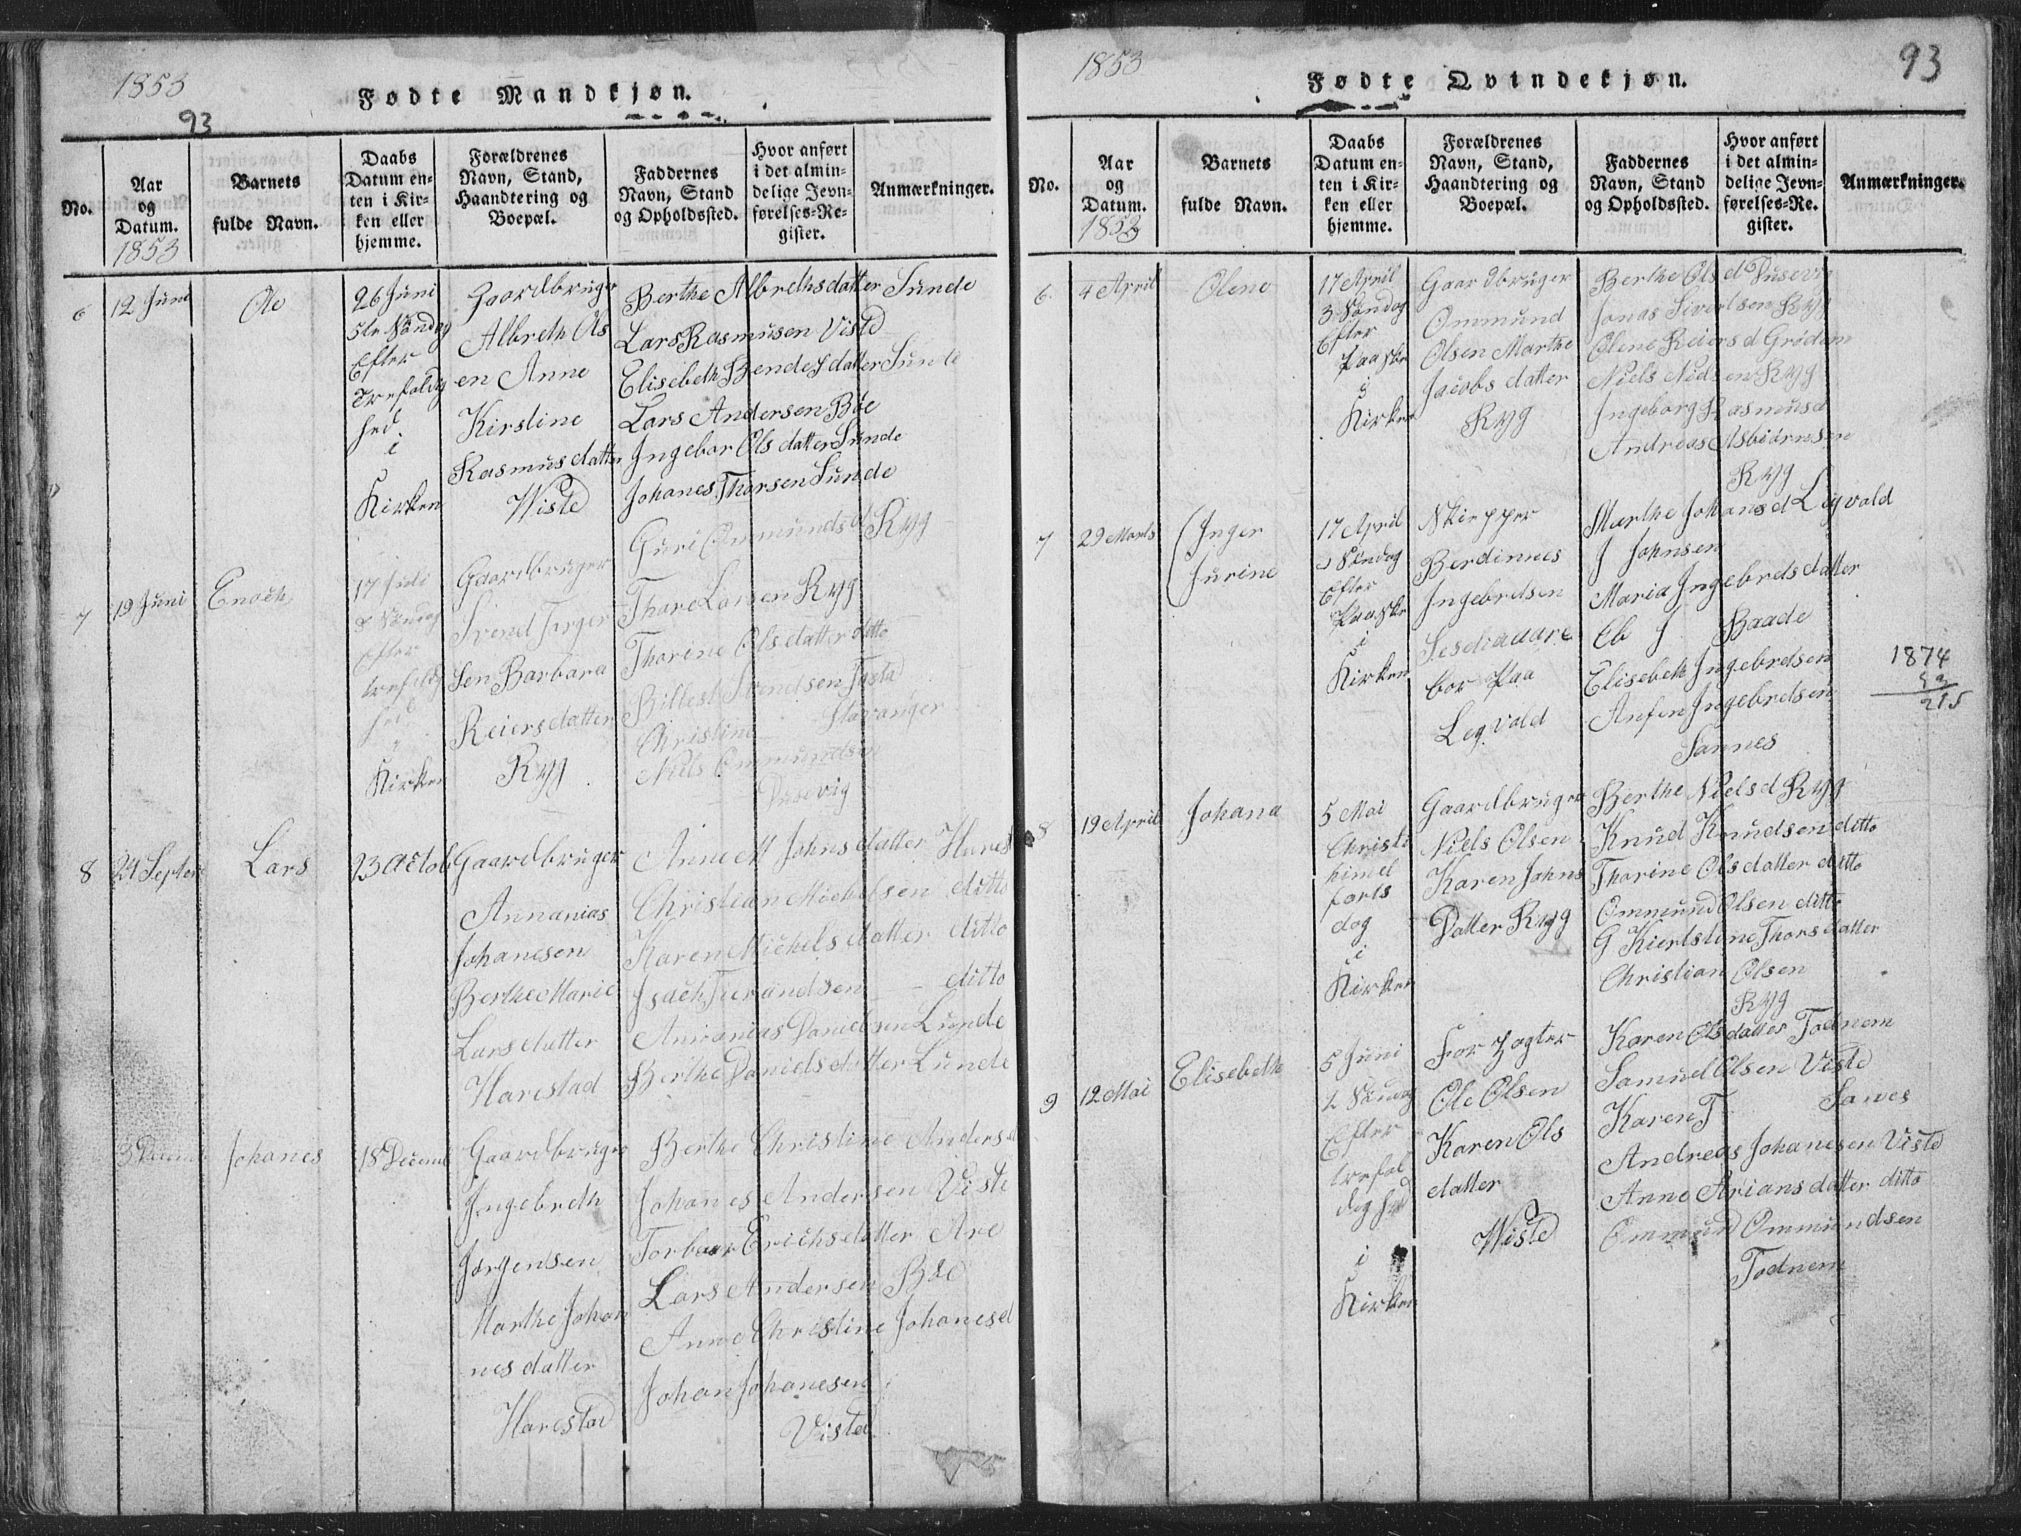 1853
Fødte Mandkjøn.
93
No.
Aar
og
Datum.
1853
Barnets
fulde Navn.
Daabs
Datum en-
ten i Kir-
ken eller
hjemme.
Forældrenes
Navn, Stand,
Haandtering og
Boepæl.
Faddernes
Navn, Stand
og Opholdssted.
Hvor anført
i det almin-
delige Jevn-
førelses-Re-
gister.
Anmærkninger.
6
12 Juni
Ole
26 Juni
5te Søndag
Efter
Trefoldig
hed
i
Kirken
Gaardbruger
Albreth Ols
en Anne
Kirstine
Rasmusdatter
Wiste
Berthe Albrethsdatter Sunde
Lars Rasmusen Viste
Elisebeth Bendesdatter Sunde
Lars Andersen Bøe
Ingebor Olsdatter Sunde
Johanes Thorsen Sunde
7
19 Juni
Enoch
17 Juli
Søndag
Efter
trefoldig
hed
i
Kirken
Gaardbruger
Svend Jørger
Sen Barbara
Reiersdatter
Ryg
Guri Ommundsd Ryg
Thore Larsen Ryg
Thorine Olsdatter ditto
Svendsen Tasta
Christine Stavanger
Niels Ommundsen
Dusevig
8
24 Septem
Lars
23 Octob
Gaardbruger
Annanias
Johanesen
Berthe Marie
Larsdatter
Harestad
Anne M Johnsdatter Hares
Christian Michelsen ditto
Karen Michelsdatter ditto
Isach Turandsen ditto
Annanias Danielsen Lunde
Berthe Danielsdatter Lunde
3 Decem
Johanes
18 Decemb
Gaardbruger
Ingebreth
Jørgensen
Marthe Johan
nesdatter
Harestad
Berthe Christine Andersd
Johanes Andersen Viste
Torbaar Erichsdatter Are
Lars Andersen Bøe
Anne Christine Johanesd
Johan Johanesen
Viste
1853
Fødte Qvindekjøn.
93
No.
Aar
og
Datum.
1853
Barnets
fulde Navn.
Daabs
Datum en-
ten i Kir-
ken eller
hjemme.
Forældrenes
Navn, Stand,
Haandtering og
Boepæl.
Faddernes
Navn, Stand
og Opholdssted.
Hvor anført
i det almin-
delige Jevn-
førelses-Re-
gister.
Anmærkninger.
6
4 April
Olene
17 April
3 Søndag
Efter
Paaske
i
Kirken
Gaardbruger
Ommund
Olsen Marthe
Jacobsdatter
Ryg
Berthe Olsd Dusevig
Jonas Sivertsen Ryg
Olene Reiersd Grødem
Niels Nielsen Ryg
Ingeborg Rasmusd
Andreas Asbiørnsen
Ryg
7
29 Marts
Inger
Jurine
17 April
3 Søndag
Efter
Paaske
i
Kirken
Skipper
Berdinnes
Ingebretsen
boe Paa
Legvold
Marthe Johansd Legvold
J Johnsen
Maria Ingebretsdatter
Baade
Elisebeth Ingebretsen
Anfen Ingebretsen
Sannes
1874
53
215
8
19 April
Johana
5 Mai
Christi
himel
farts
dag
i
Kirken
Gaardbruger
Niels Olsen
Karen Johns
Datter Ryg
Berthe Nielsd Ryg
Knud Knudsen ditto
Thorine Olsdatter ditto
Ommund Olsen ditto
G Kierstine Thorsdatter
Christian Olsen
Ryg
9
12 Mai
Elisebeth
5 Juni
2 Søndag
Efter
trefol
dighed
i
Kirken
Forpagter
Ole Olsen
Karen Ols
datter
Wiste
Karen Olsdatter Todnem
Samuel Olsen Viste
Karen T Sanes
Andreas Johanesen Viste
Anne Ariansdatter ditto
Ommund Ommundsen
Todnem